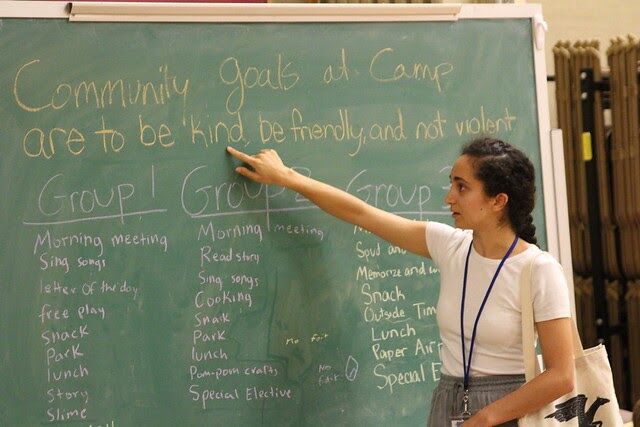 Community goals at Camp
are to be kind, be friendly, and not violent
Group 1
Morning meeting
Sing songs
letter of the day
free play
snack
Park
lunch
Story
Slime
Group 2
Morning meeting
Read story
Sing songs
Cooking
Snaik
Park
lunch
Pom-pom crafts
Special Elective
No fair
No
fair
Group
Spud and
Memorize and
Snack
Outside Tim
Lunch
Paper Air
Special E